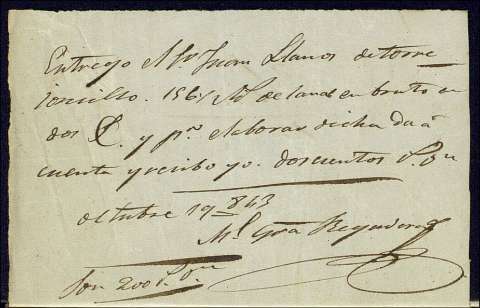 Entrego el Sr Juan Llanos de torre
joncillo. 156½ de lana en bruto en
dos y pa elaborar dicha da á
cuenta y recibo yo. doscientos Rs. von
octubre 19 843
Ml Gra Regidor
Son 200 Rs. von